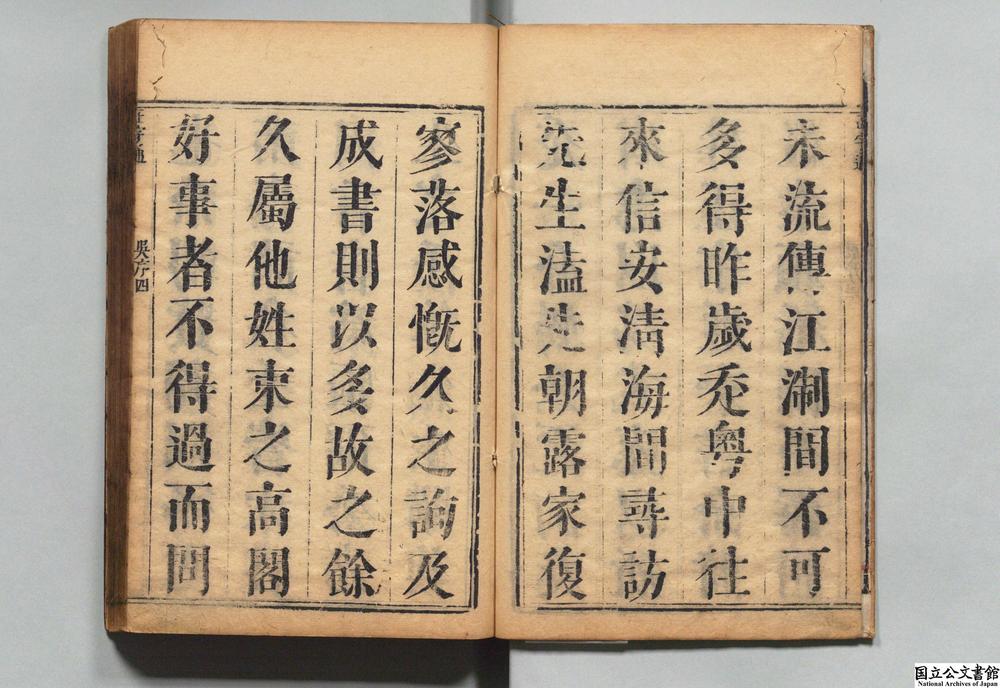 未流傳江淛間不可
多得昨歲忝粵中往
來信安淸海間尋訪
先生溘先朝露家復
寥落感慨久之詢及
成書則以多故之餘
久屬他姓束之高閣
好事者不得過而問
吳序四
国立公文書館
National Archives of Japan